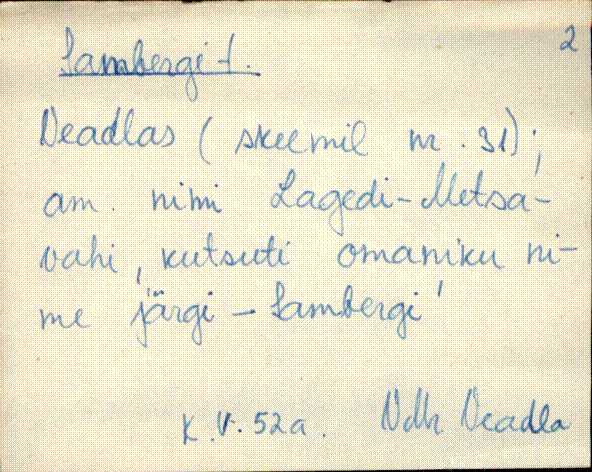 2
Sambergi t.
Veadlas (skeemil nr. 31);
am. nimi Lagedi-Metsa-
vahi, kutsuti omaniku ni-
me järgi - Sambergi'
K.V. 52a. Vdk Veadla